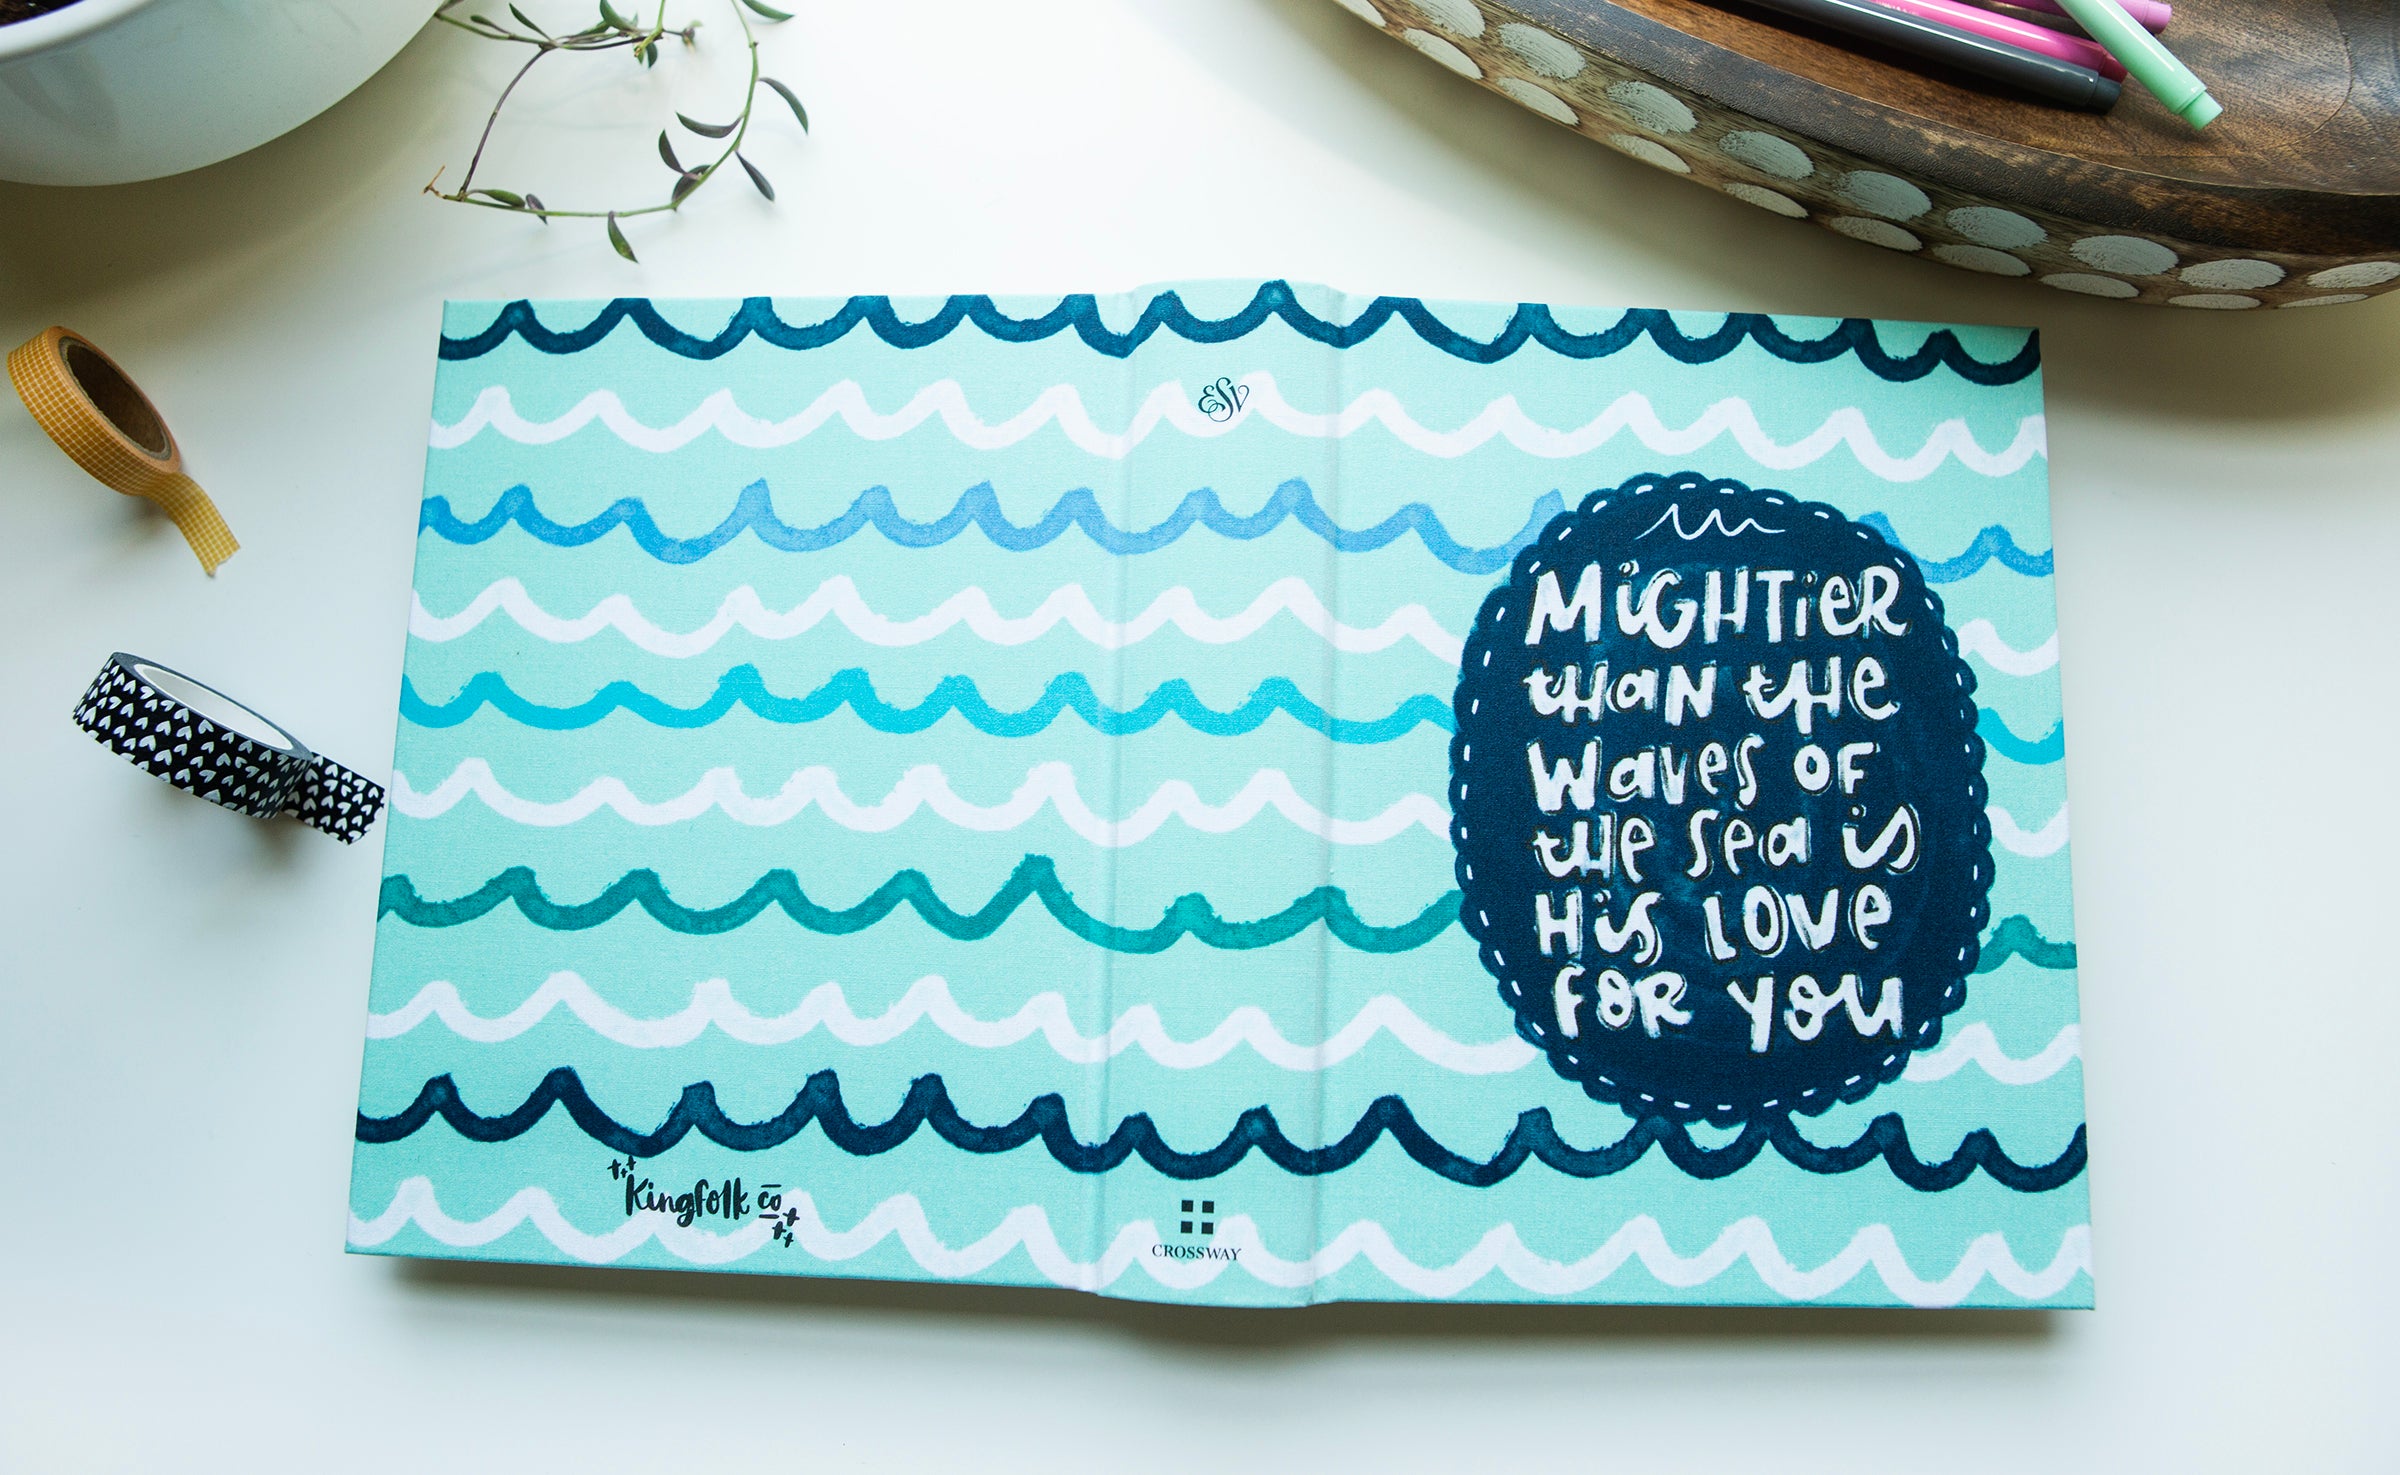 ESV
MiGHTieR
tHaN tHe
Waves OF
tHe Sea is
His LOVe
FOR YOu
Kingfolk co
CROSSWAY